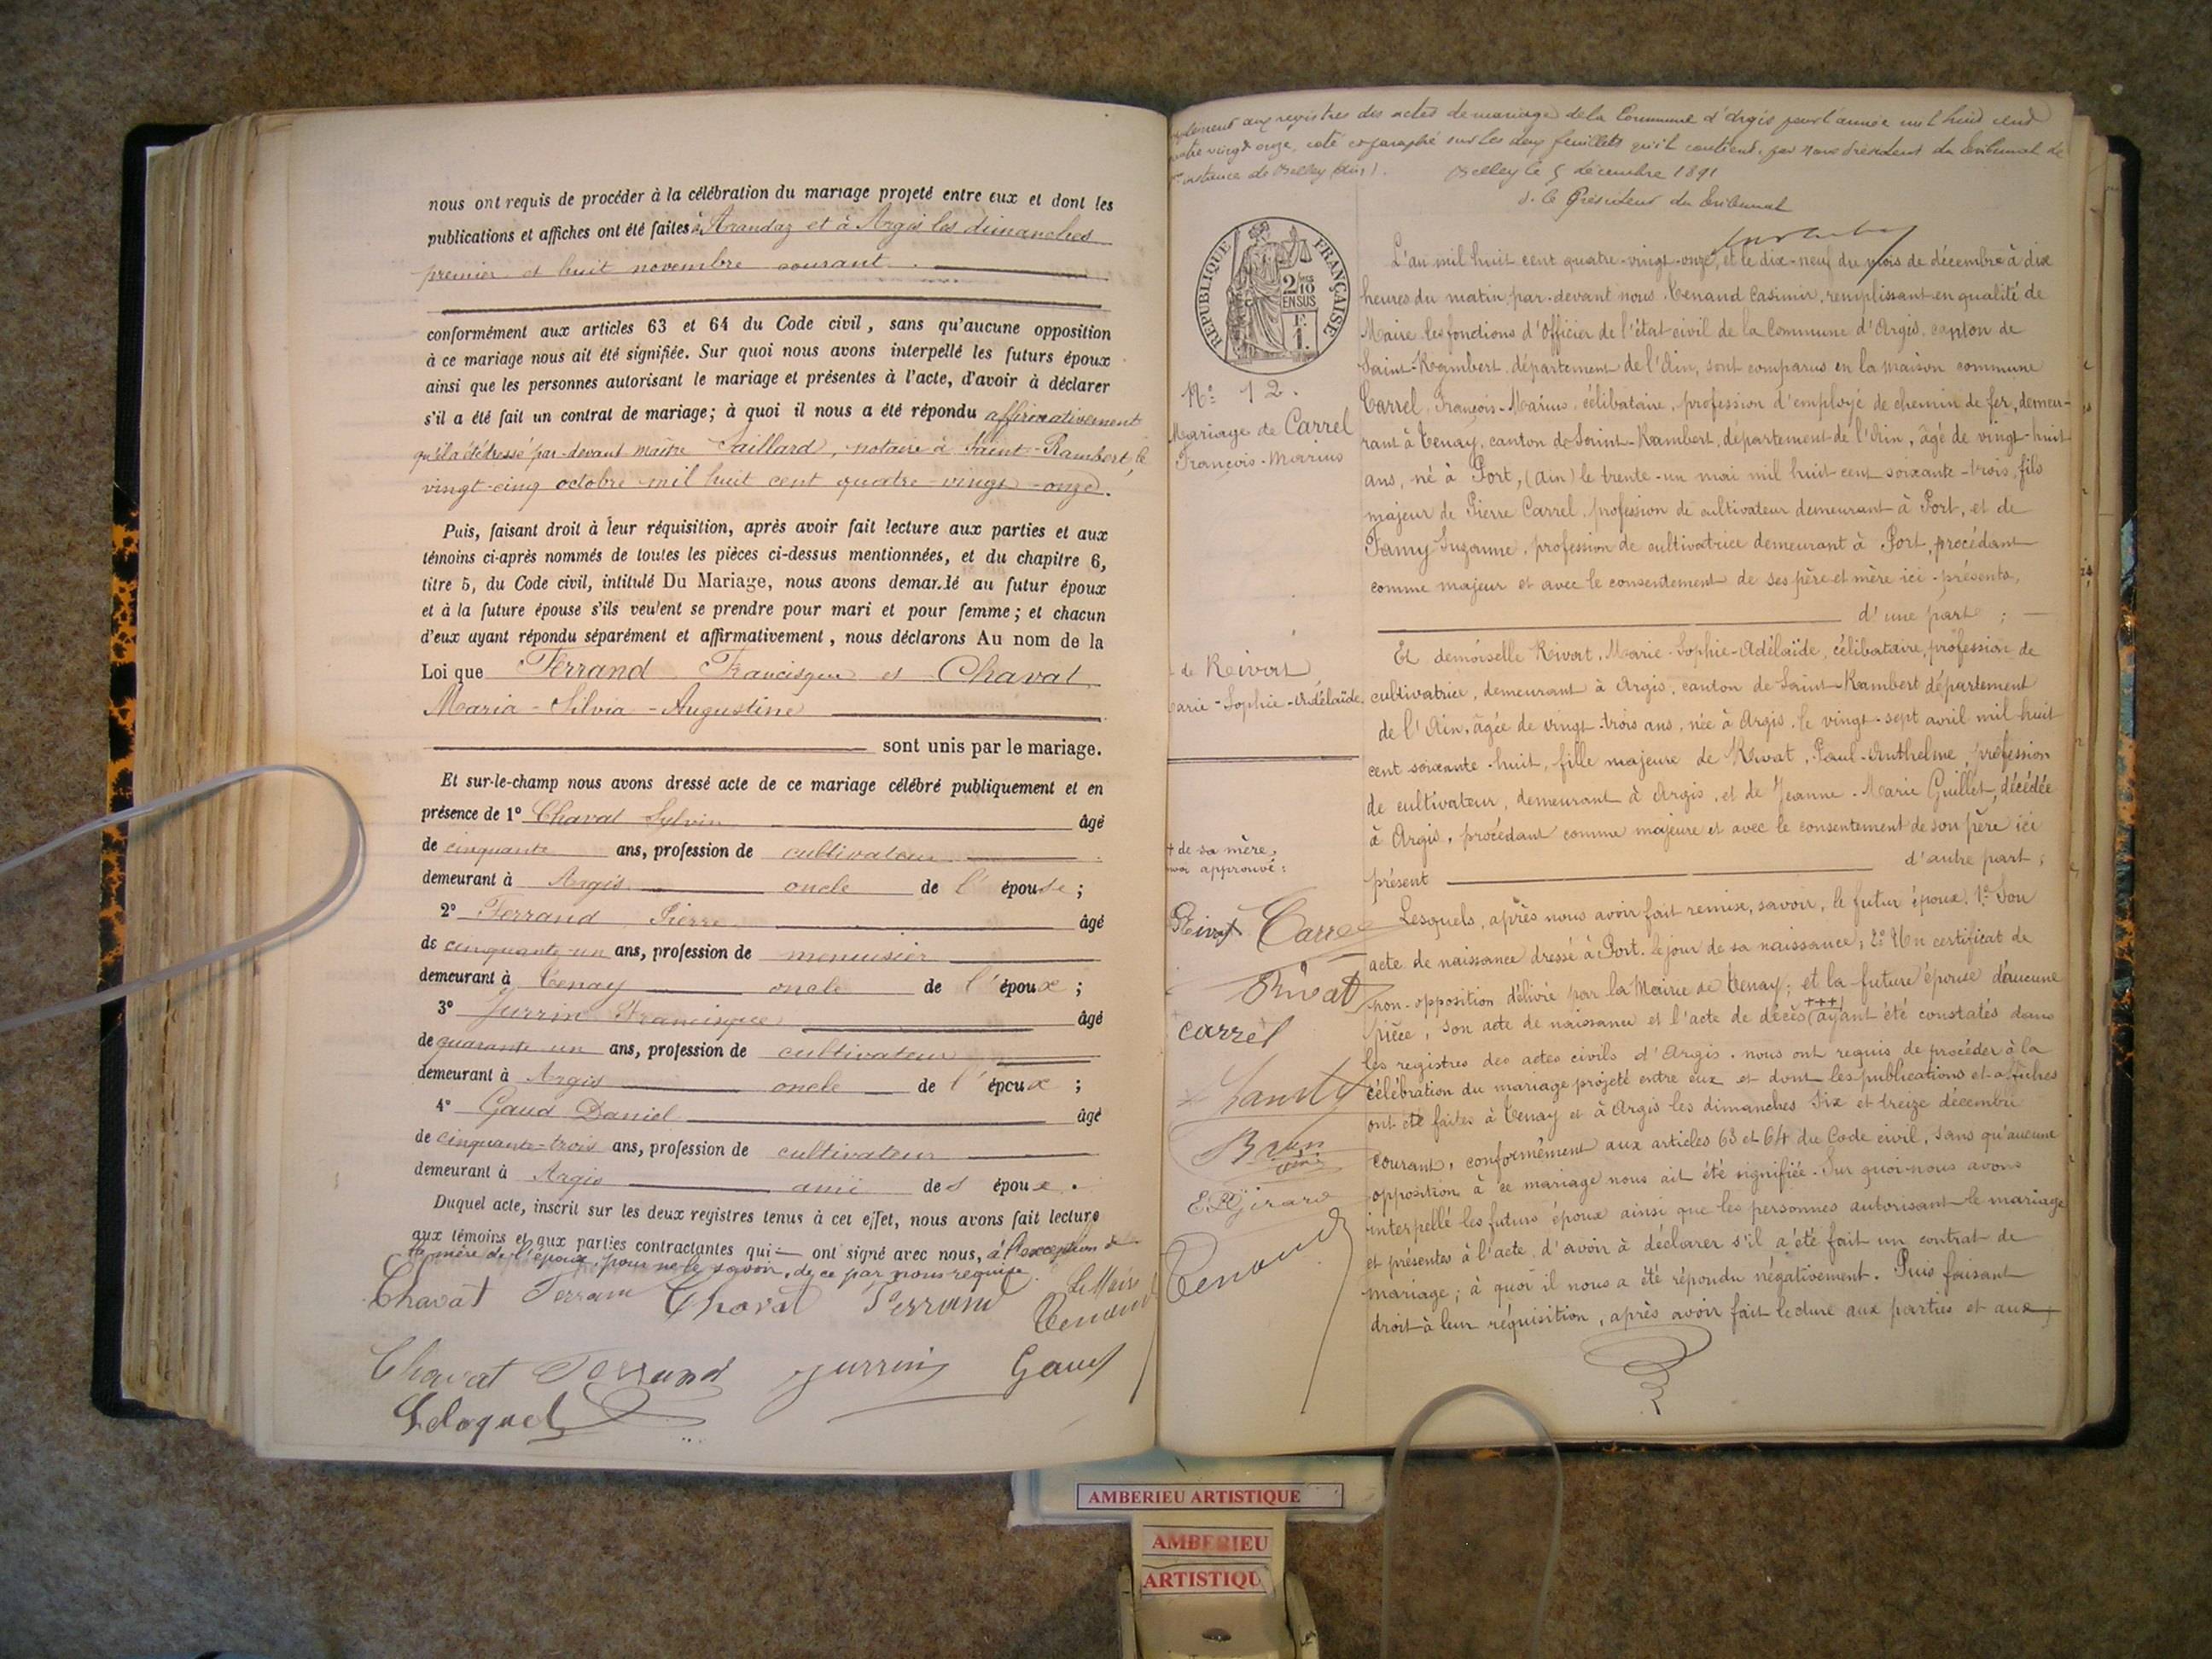 nous ont requis de procéder à la célébration du mariage projeté entre eux et dont les
publications et affiches ont été faites à Arandaz et à Argis les dimanches
premier et huit novembre courant.
conformément aux articles 63 et 64 du Code civil, sans qu'aucune opposition
à ce mariage nous ait été signifiée. Sur quoi nous avons interpellé les futurs époux
ainsi que les personnes autorisant le mariage et présentes à l'acte, d'avoir à déclarer
s'il a été fait un contrat de mariage; à quoi il nous a été répondu affirmativement
qu'il a été dressé par-devant maître Saillard, notaire à Saint-Rambert, le
vingt-cinq octobre mil huit cent quatre-vingt-onze.
Puis, faisant droit à leur réquisition, après avoir fait lecture aux parties et aux
témoins ci-après nommés de toutes les pièces ci-dessus mentionnées, et du chapitre 6,
titre 5, du Code civil, intitulé Du Mariage, nous avons demandé au futur époux
et à la future épouse s'ils veulent se prendre pour mari et pour femme; et chacun
d'eux ayant répondu séparément et affirmativement, nous déclarons Au nom de la
Loi que Ferrand Francisque et Chavat
Maria-Silvia-Augustine
sont unis par le mariage.
Et sur-le-champ nous avons dressé acte de ce mariage célébré publiquement et en
présence de 1° Chavat Sylvin âgé
de cinquante ans, profession de cultivateur
demeurant à Argis oncle de l'épouse;
2° Ferrand Pierre âgé
de cinquante-un ans, profession de menuisier
demeurant à Tenay oncle de l'époux;
3° Jurrin Francisque âgé
de quarante-un ans, profession de cultivateur
demeurant à Argis oncle de l'époux;
4° Gaud Daniel âgé
de cinquante-trois ans, profession de cultivateur
demeurant à Argis ami des époux.
Duquel acte, inscrit sur les deux registres tenus à cet effet, nous avons fait lecture
aux témoins et aux parties contractantes qui ont signé avec nous, à l'exception de
la mère de l'époux, pour ne le savoir, de ce par nous requise.
Chavat Ferrand Chavat Ferrand Le Maire
Tenand
Chavat Ferrand Jurrin Gaud
Seloquel
aux registres des actes de mariage de la Commune d'Argis pour l'année mil huit cent
quatre vingt onze, coté et paraphé sur les deux feuillets qu'il contient, par nous Président du tribunal de
instance de Belley (Ain). Belley le 5 décembre 1891
Le Président du tribunal
REPUBLIQUE FRANÇAISE
2/10 EN SUS
F.
1.
N° 12.
Mariage de Carrel
François-Marius
de Rivat
Marie-Sophie-Adélaïde.
+ de sa mère,
approuvé:
L'an mil huit cent quatre-vingt-onze, et le dix-neuf du mois de décembre à dix
heures du matin, par-devant nous, Tenand Casimir, remplissant en qualité de
Maire les fonctions d'Officier de l'état civil de la Commune d'Argis, canton de
Saint-Rambert, département de l'Ain, sont comparus en la maison commune
Carrel, François-Marius, célibataire, profession d'employé de chemin de fer, demeu-
rant à Tenay, canton de Saint-Rambert, département de l'Ain, âgé de vingt-huit
ans, né à Port, (Ain) le trente-un mai mil huit cent soixante-trois, fils
majeur de Pierre Carrel, profession de cultivateur demeurant à Port, et de
Famy Suzanne, profession de cultivatrice demeurant à Port, procédant
comme majeur et avec le consentement de ses père et mère ici-présents,
d'une part;
Et demoiselle Rivat, Marie-Sophie-Adélaïde, célibataire, profession de
cultivatrice, demeurant à Argis, canton de Saint-Rambert département
de l'Ain, âgée de vingt-trois ans, née à Argis, le vingt-sept avril mil huit
cent soixante-huit, fille majeure de Rivat, Paul-Anthelme, profession
de cultivateur, demeurant à Argis, et de Jeanne-Marie Guillet, décédée
à Argis, procédant comme majeure et avec le consentement de son père ici
présent d'autre part;
Lesquels, après nous avoir fait remise, savoir, le futur époux: 1° Son
acte de naissance dressé à Port, le jour de sa naissance; 2° Un certificat de
non-opposition délivré par la Mairie de Tenay; et la future épouse d'aucune
pièce, son acte de naissance et l'acte de décès (+++) ayant été constatés dans
les registres des actes civils d'Argis, nous ont requis de procéder à la
célébration du mariage projeté entre eux et dont les publications et affiches
ont été faites à Tenay et à Argis les dimanches six et treize décembre
courant, conformément aux articles 63 et 64 du Code civil, sans qu'aucune
opposition à ce mariage nous ait été signifiée. Sur quoi nous avons
interpellé les futurs époux ainsi que les personnes autorisant le mariage
et présentes à l'acte, d'avoir à déclarer s'il a été fait un contrat de
mariage; à quoi il nous a été répondu négativement. Puis faisant
droit à leur réquisition, après avoir fait lecture aux parties et aux
Rivat Carrel
Rivat
carrel
Brun
Girard
Tenand
AMBERIEU ARTISTIQUE
AMBERIEU
ARTISTIQU